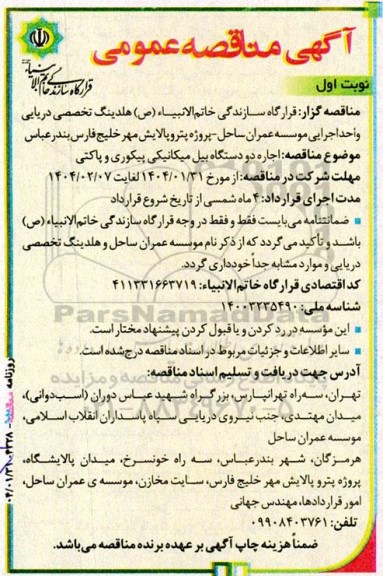 آگهی مناقصه عمومی
قرارگاه سازندگی خاتم الانبیاء
نوبت اول
مناقصه گزار: قرارگاه سازندگی خاتم الانبیاء (ص) هلدینگ تخصصی دریایی
واحد اجرایی موسسه عمران ساحل -پروژه پتروپالایش مهر خلیج فارس بندرعباس
موضوع مناقصه: اجاره دو دستگاه بیل میکانیکی پیکوری و پاکتی
مهلت شرکت در مناقصه: از مورخ ۱۴۰۴/۰۱/۳۱ لغایت ۱۴۰۴/۰۲/۰۷
مدت اجرای قرارداد: ۴ ماه شمسی از تاریخ شروع قرارداد
ضمانتنامه می‌بایست فقط و فقط در وجه قرارگاه سازندگی خاتم‌الانبیاء (ص)
باشد و تأکید می‌گردد که از ذکر نام موسسه عمران ساحل و هلدینگ تخصصی
دریایی و موارد مشابه جداً خودداری گردد.
کد اقتصادی قرارگاه خاتم‌الانبیاء: ۴۱۱۳۳۱۶۶۳۷۱۹
شناسه ملی: ۱۴۰۰۳۲۳۵۴۹۰
این مؤسسه در رد کردن و یا قبول کردن پیشنهاد مختار است.
سایر اطلاعات و جزئیات مربوط در اسناد مناقصه درج شده است.
آدرس جهت دریافت و تسلیم اسناد مناقصه:
تهران، سه راه تهرانپارس، بزرگراه شهید عباس دوران (اسب‌دوانی)،
میدان مهتدی، جنب نیروی دریایی سپاه پاسداران انقلاب اسلامی،
موسسه عمران ساحل
هرمزگان، شهر بندرعباس، سه راه خونسرخ، میدان پالایشگاه،
پروژه پترو پالایش مهر خلیج فارس، سایت مخازن، موسسه ی عمران ساحل،
امور قراردادها، مهندس جهانی
تلفن: ۰۹۹۰۸۴۰۳۷۶۱
ضمناً هزینه چاپ آگهی بر عهده برنده مناقصه می‌باشد.
ParsNamadData
روزنامه